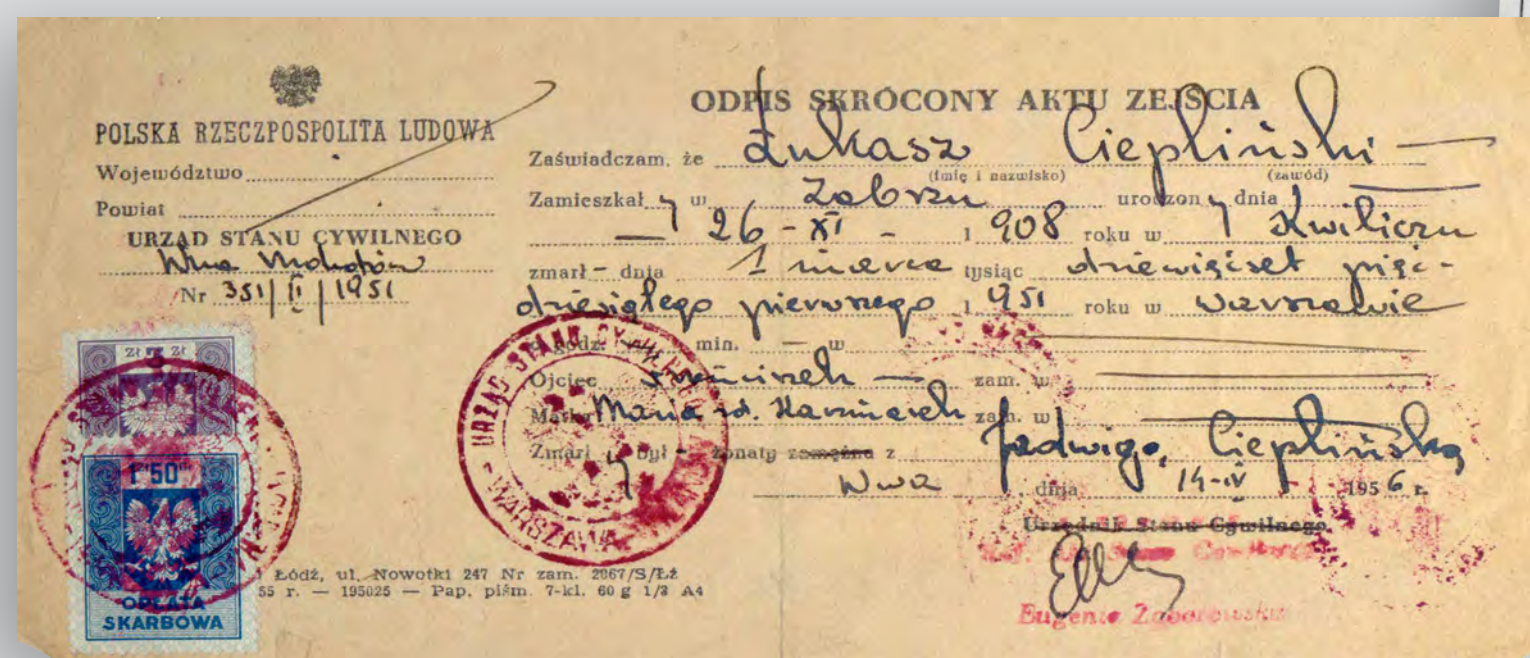 POLSKA RZECZPOSPOLITA LUDOWA
Województwo
Powiat
URZĄD STANU CYWILNEGO
Wwa Mokotów
Nr 351/II/1951
ODPIS SKRÓCONY AKTU ZEJŚCIA
Zaświadczam, że Łukasz Ciepliński —
(imię i nazwisko) (zawód)
Zamieszkały w Zabrzu urodzony dnia —
— 26-XI- 1908 roku w Kwiliczu
zmarł - dnia 1 marca tysiąc dziewięćset pięć-
dziesiątego pierwszego 1951 roku w Warszawie
o godz. — min. — w
Ojciec Franciszek — zam. w —
Matka Maria zd. Kaczmarek zam. w —
Zmarły był - żonaty zamężna z Jadwigą Cieplińską
Wwa, dnia 14-IV 1956 r.
Urzędnik Stanu Cywilnego
Eugenia
URZĄD STANU CYWILNEGO
WARSZAWA
ZŁ ZŁ
1'50
OPŁATA
SKARBOWA
Łódź, ul. Nowotki 247 Nr zam. 2067/S/Łż
55 r. — 195025 — Pap. piśm. 7-kl. 60 g 1/3 A4